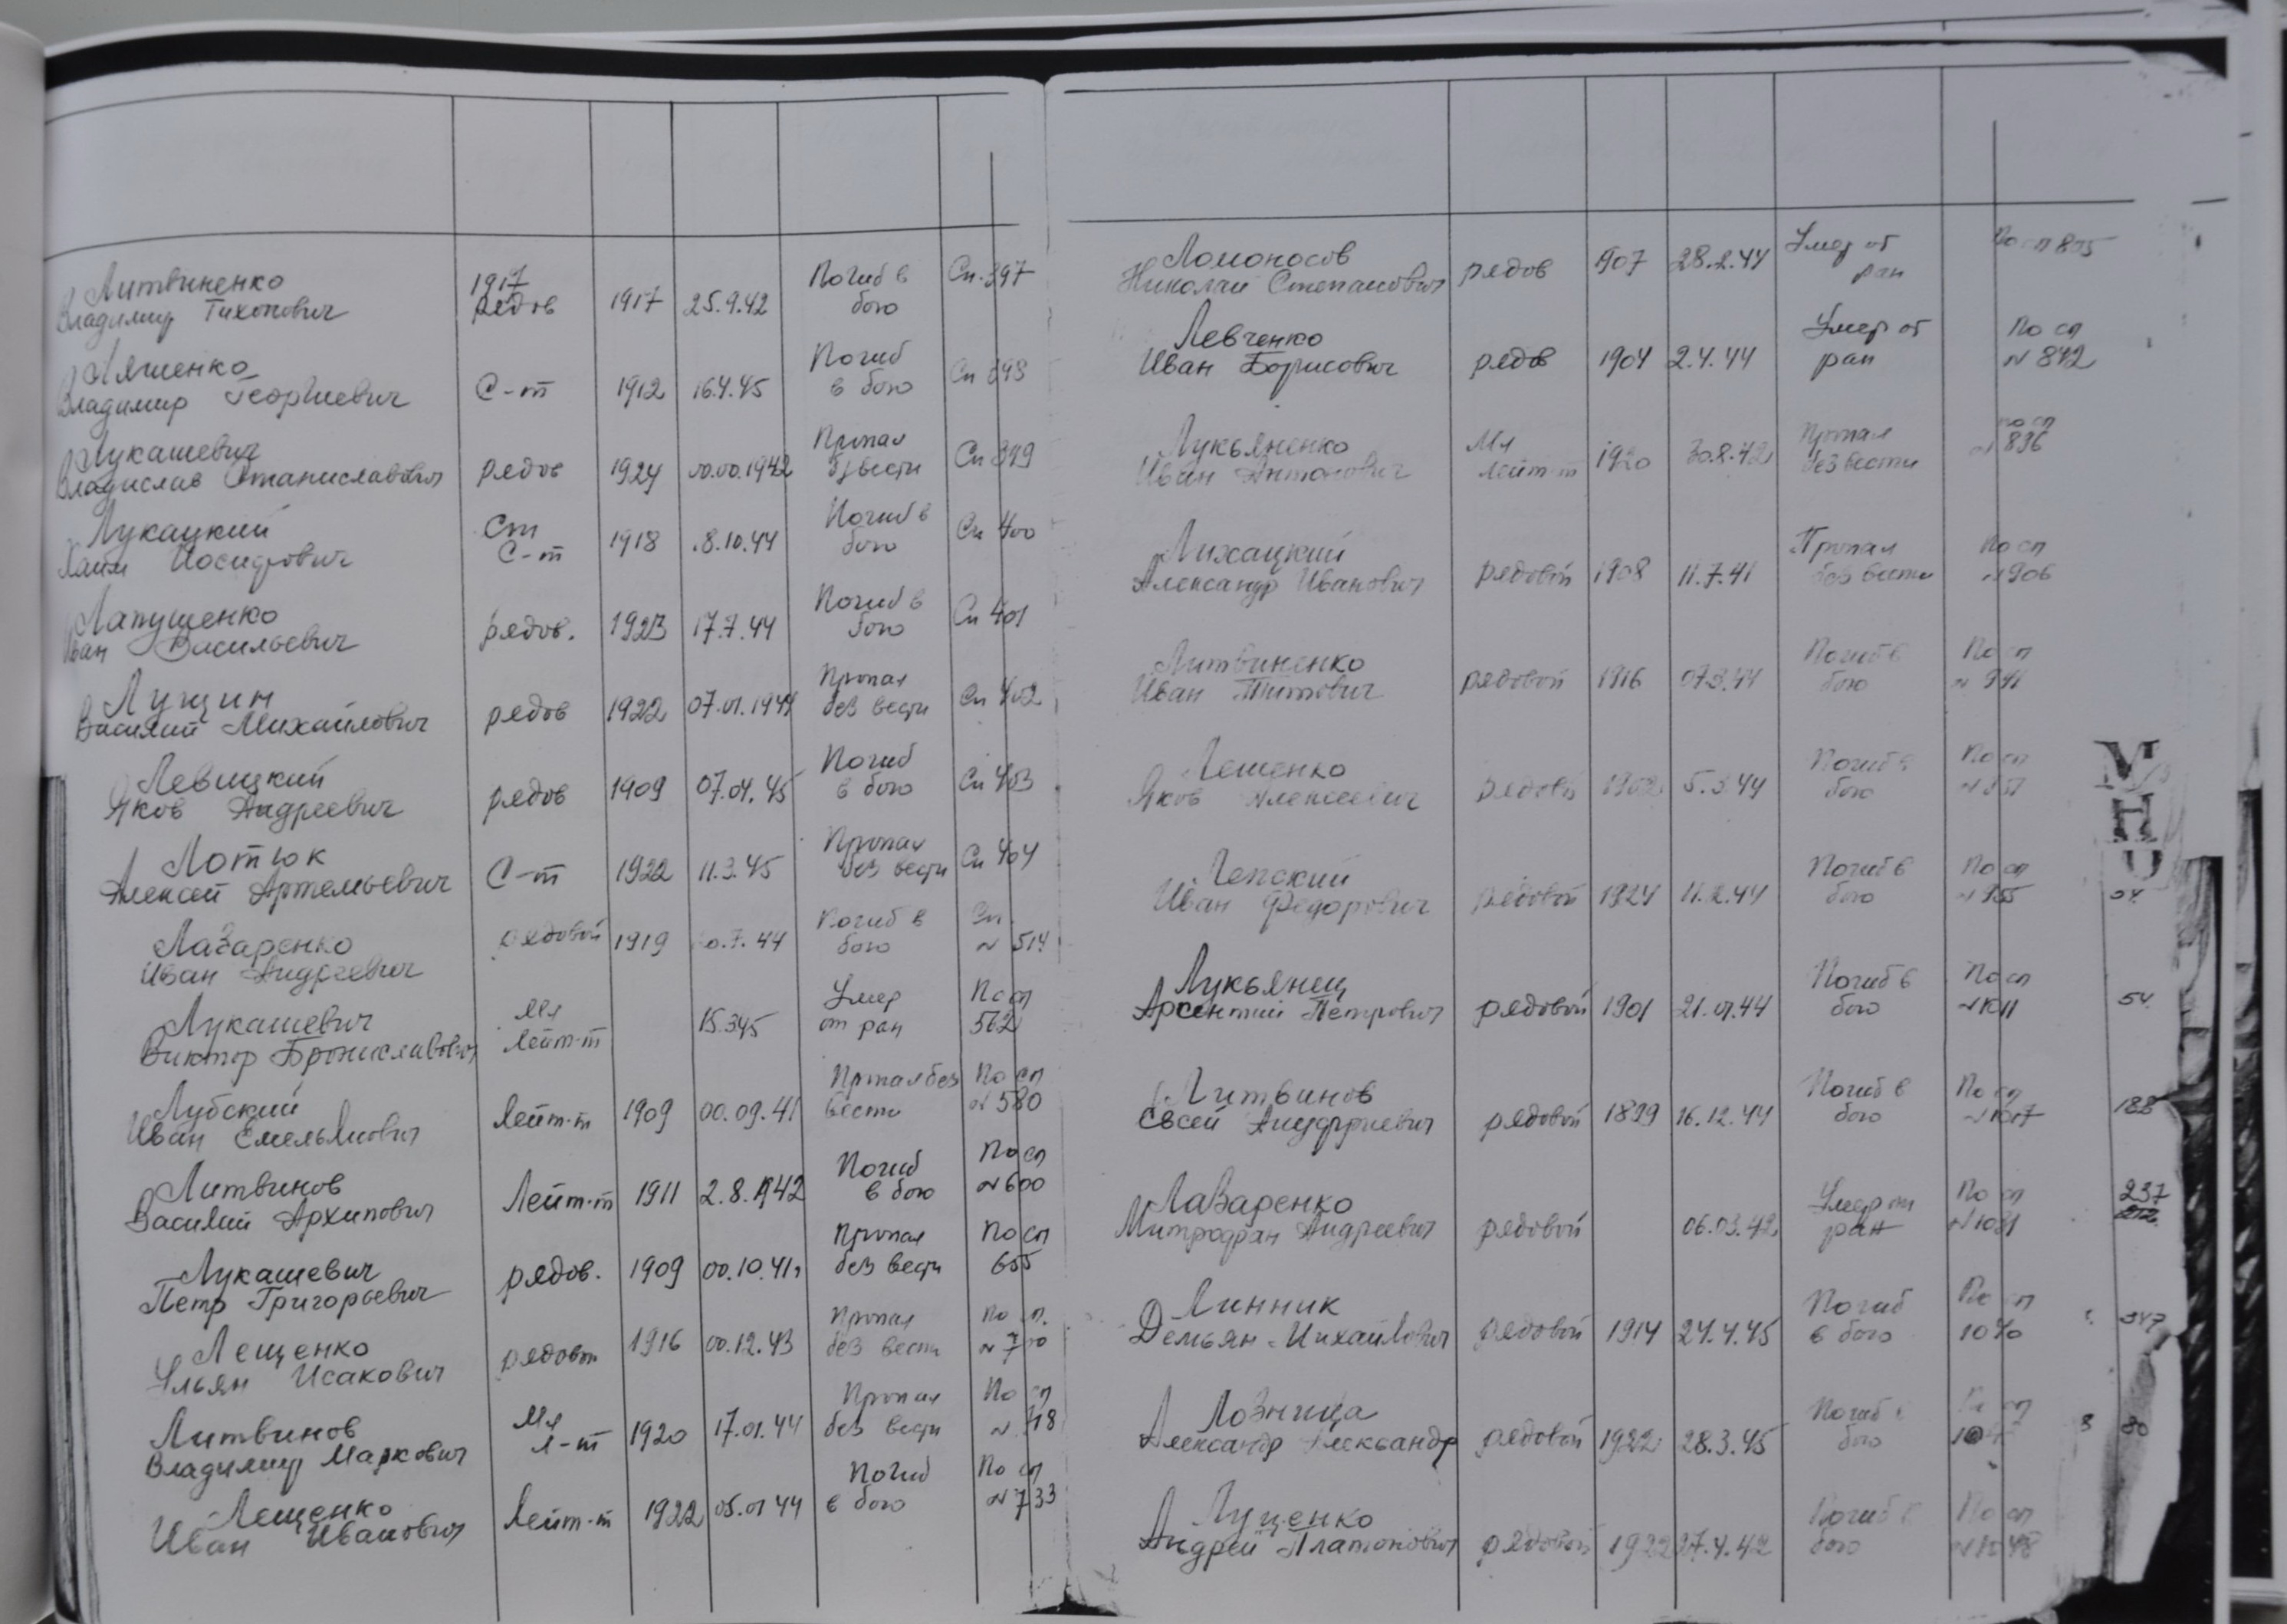 Литвиненко 1917 Погиб в Сп. 397
Владимир Тихонович рядов 1917 25.9.42 бою
Ляшенко Погиб
Владимир Георгиевич С-т 1912 16.4.45 в бою Сп 398
Лукашевич Пропал
Владислав Станиславович рядов 1924 00.00.1942 вести Сп 399
Лукацкий Ст Погиб в Сп 400
Хаим Иосифович С-т 1918 8.10.44 бою
Лапушенко Погиб в Сп 401
Иван Васильевич рядов. 1923 17.7.44 бою
Лущин Пропал
Василий Михайлович рядов 1922 07.01.1944 без вести Сп 402
Левицкий Погиб
Яков Андреевич рядов 1909 07.04.45 в бою Сп 403
Лотюк Пропал
Алексей Артемьевич С-т 1922 11.3.45 без вести Сп 404
Лазаренко рядовой 1919 0.7.44 Погиб в Сп.
Иван Андреевич бою № 514
Лукашевич Мл Умер По сп
Виктор Брониславович Лейт-т 15.3.45 от ран 562
Лубский Пропал без По сп
Иван Емельянович Лейт-т 1909 00.09.41 вести № 580
Литвинов Погиб По сп
Василий Архипович Лейт-т 1911 2.8.1942 в бою № 600
Лукашевич Пропал По сп
Петр Григорьевич рядов. 1909 00.10.41 без вести 655
Лещенко Пропал По сп.
Ульян Исакович рядовой 1916 00.12.43 без вести № 700
Литвинов Мл Пропал По сп
Владимир Маркович Л-т 1920 17.01.44 без вести № 718
Лещенко Погиб По сп
Иван Иванович Лейт-т 1922 05.01 44 в бою № 733
Ломоносов Умер от По сп 875
Николай Степанович рядов 1907 28.2.44 ран
Левченко Умер от По сп
Иван Борисович рядов 1904 2.4.44 ран № 872
Лукьяненко Мл Пропал по сп
Иван Антонович лейт-т 1920 30.8.42 без вести № 896
Лихацкий Пропал По сп
Александр Иванович рядовой 1908 11.7.41 без вести № 906
Литвиненко Погиб в По сп
Иван Титович рядовой 1916 07.3.44 бою №
Лещенко Погиб в По сп
Яков Алексеевич рядовой 1902 5.3.44 бою
Лепский Погиб в По сп
Иван Федорович рядовой 1924 11.2.44 бою № 955
Лукьянец Погиб в По сп
Арсентий Петрович рядовой 1901 21.01.44 бою № 1011 54.
Литвинов Погиб в По сп
Евсей рядовой 1899 16.12.44 бою № 1017 188
Лазаренко Умер от По сп 237
Митрофан Андреевич рядовой 06.03.42 ран № 1031
Линник Погиб По сп
Демьян Михайлович рядовой 1914 24.4.45 в бою 1040 347
Лозница Погиб в По сп
Александр Александр рядовой 1922 28.3.45 бою 80
Луценко Погиб в По сп
Андрей Платонович рядовой 1922 27.4.42 бою № 1048